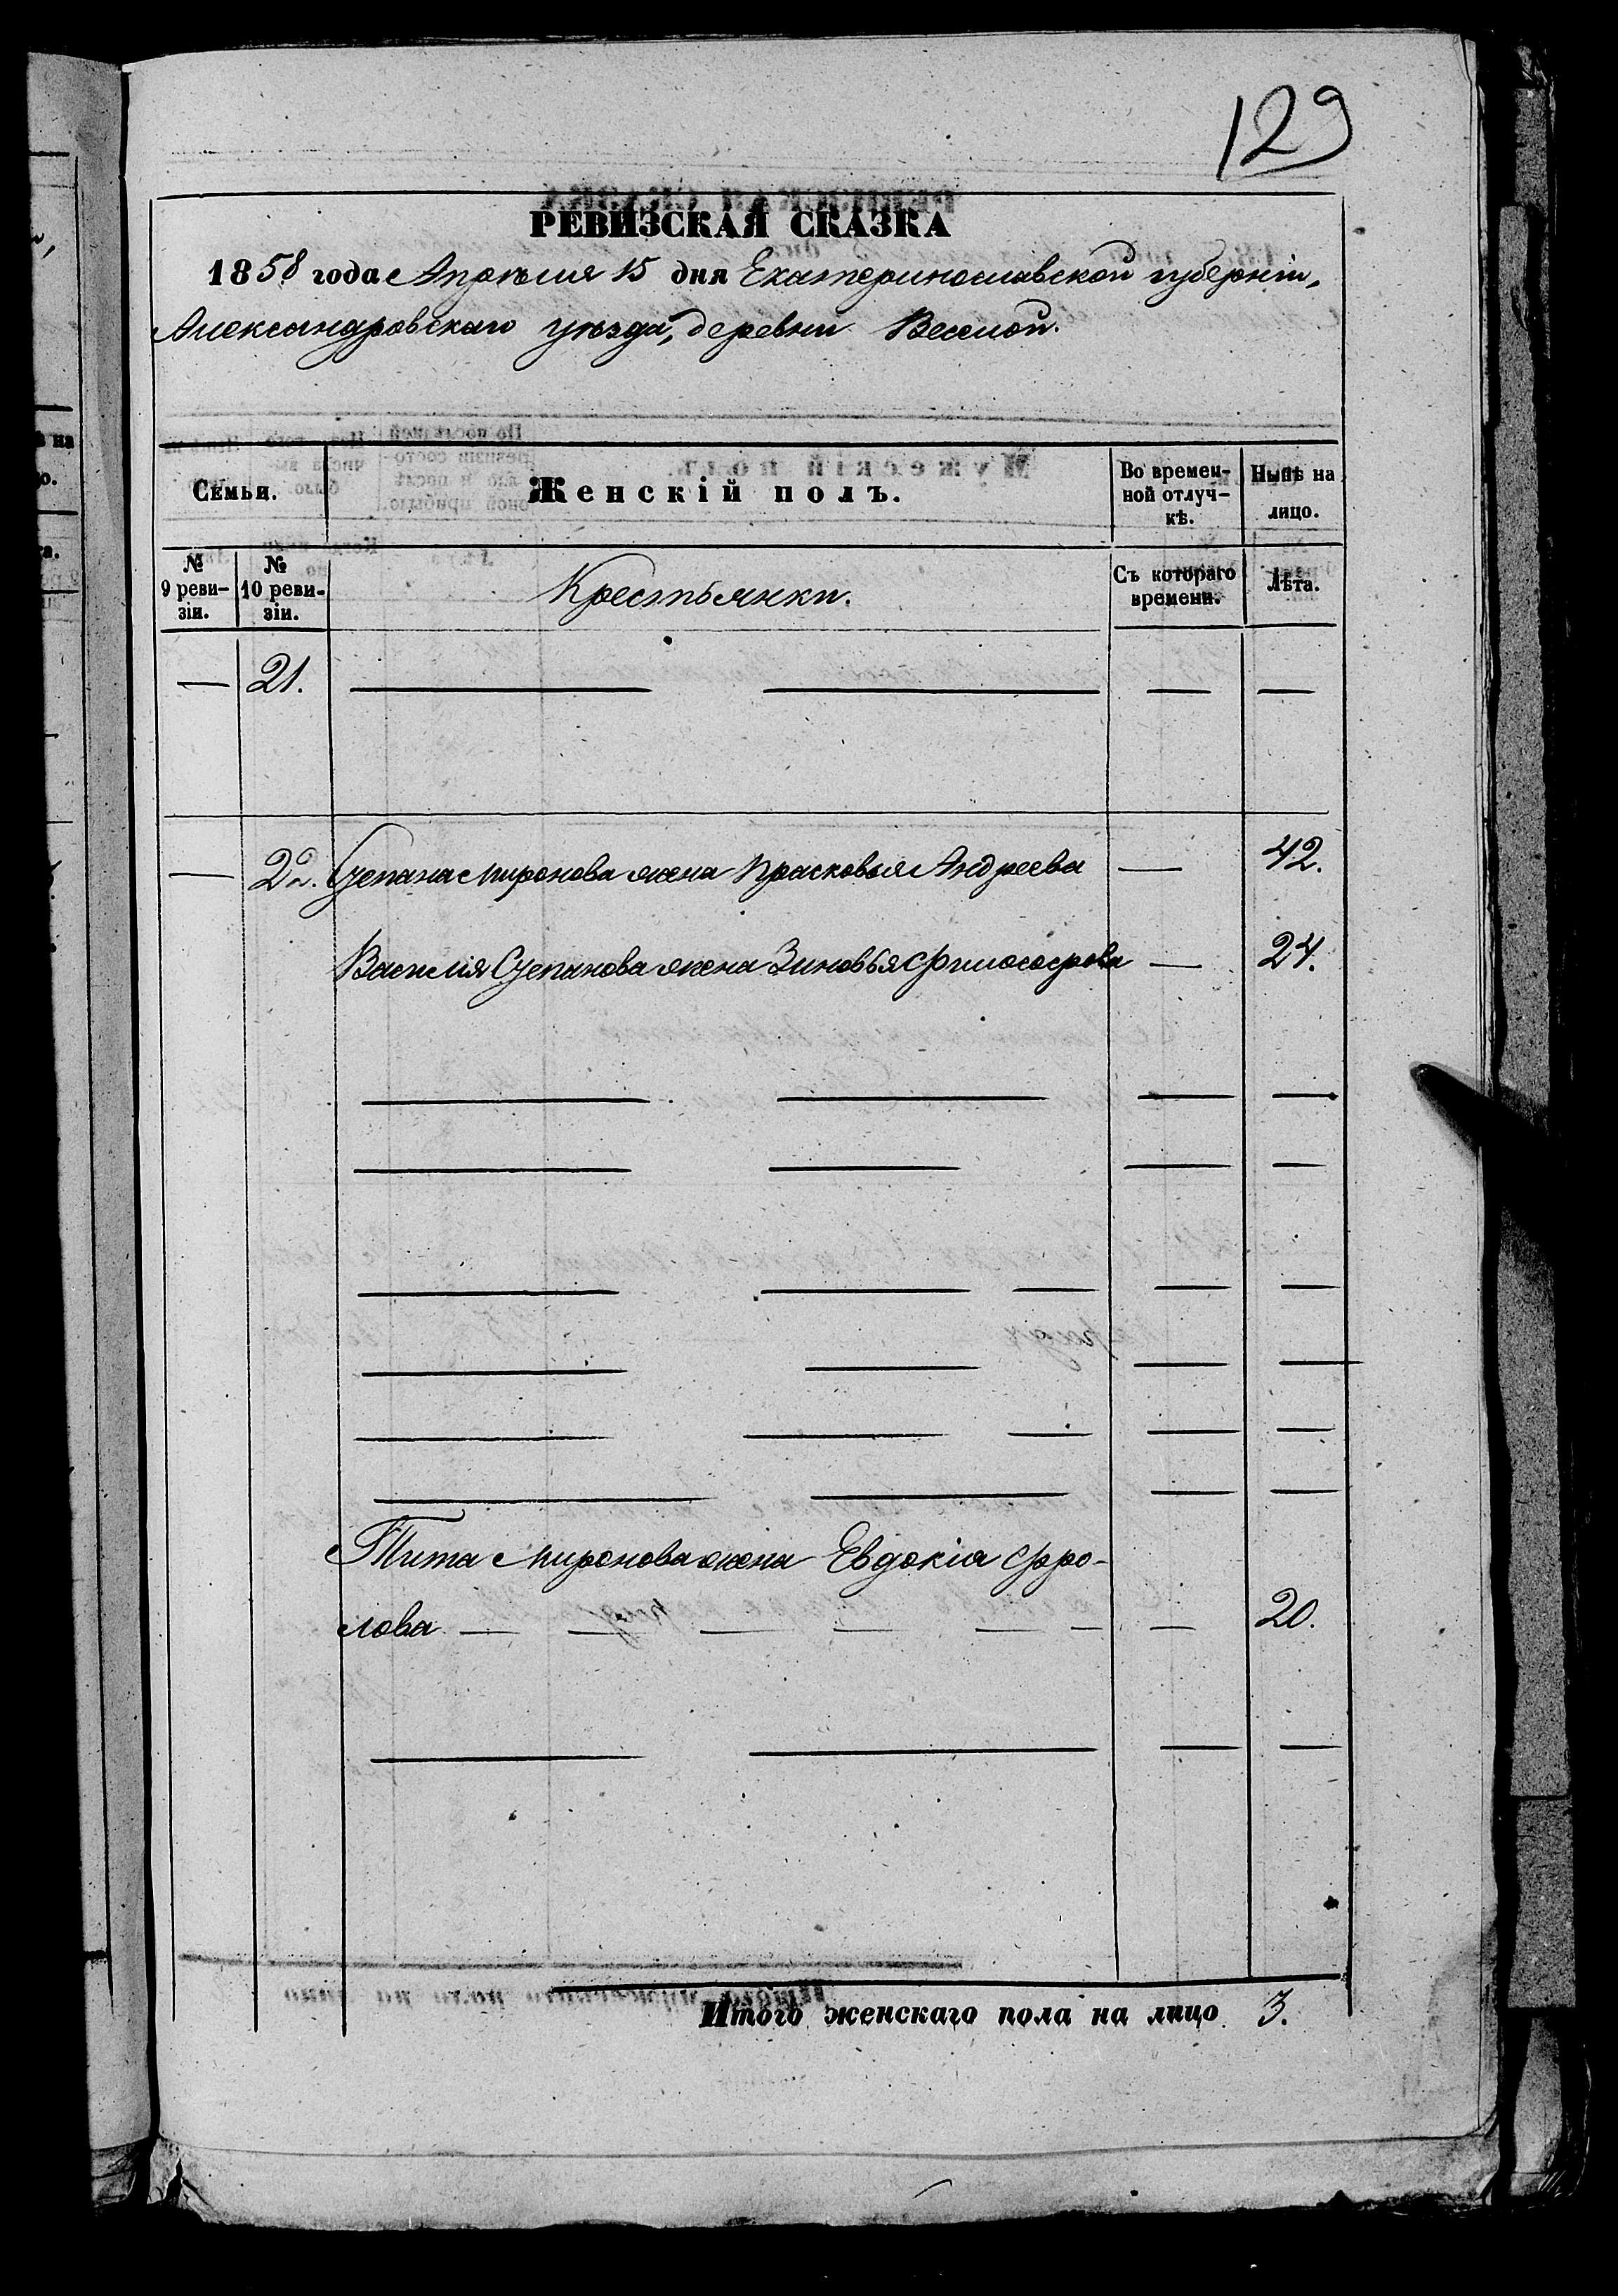 129
РЕВИЗСКАЯ СКАЗКА
1858 года Апрѣля 15 дня Екатеринославской губерніи,
Александровскаго уѣзда, деревни Веселой.
Семьи.
Женскій полъ.
Во времен-
ной отлуч-
кѣ.
Нынѣ на
лицо.
№
9 реви-
зіи.
№
10 реви-
зіи.
Крестьянки.
Съ котораго
времени.
Лѣта.
— 21. — — — —
— 22. Степана Миронова жена Прасковья Андреева — 42.
Василія Степанова жена Зиновья Философова — 24.
Тита Миронова жена Евдокія Фро-
лова — — — — — — — 20.
Итого женскаго пола на лицо 3.